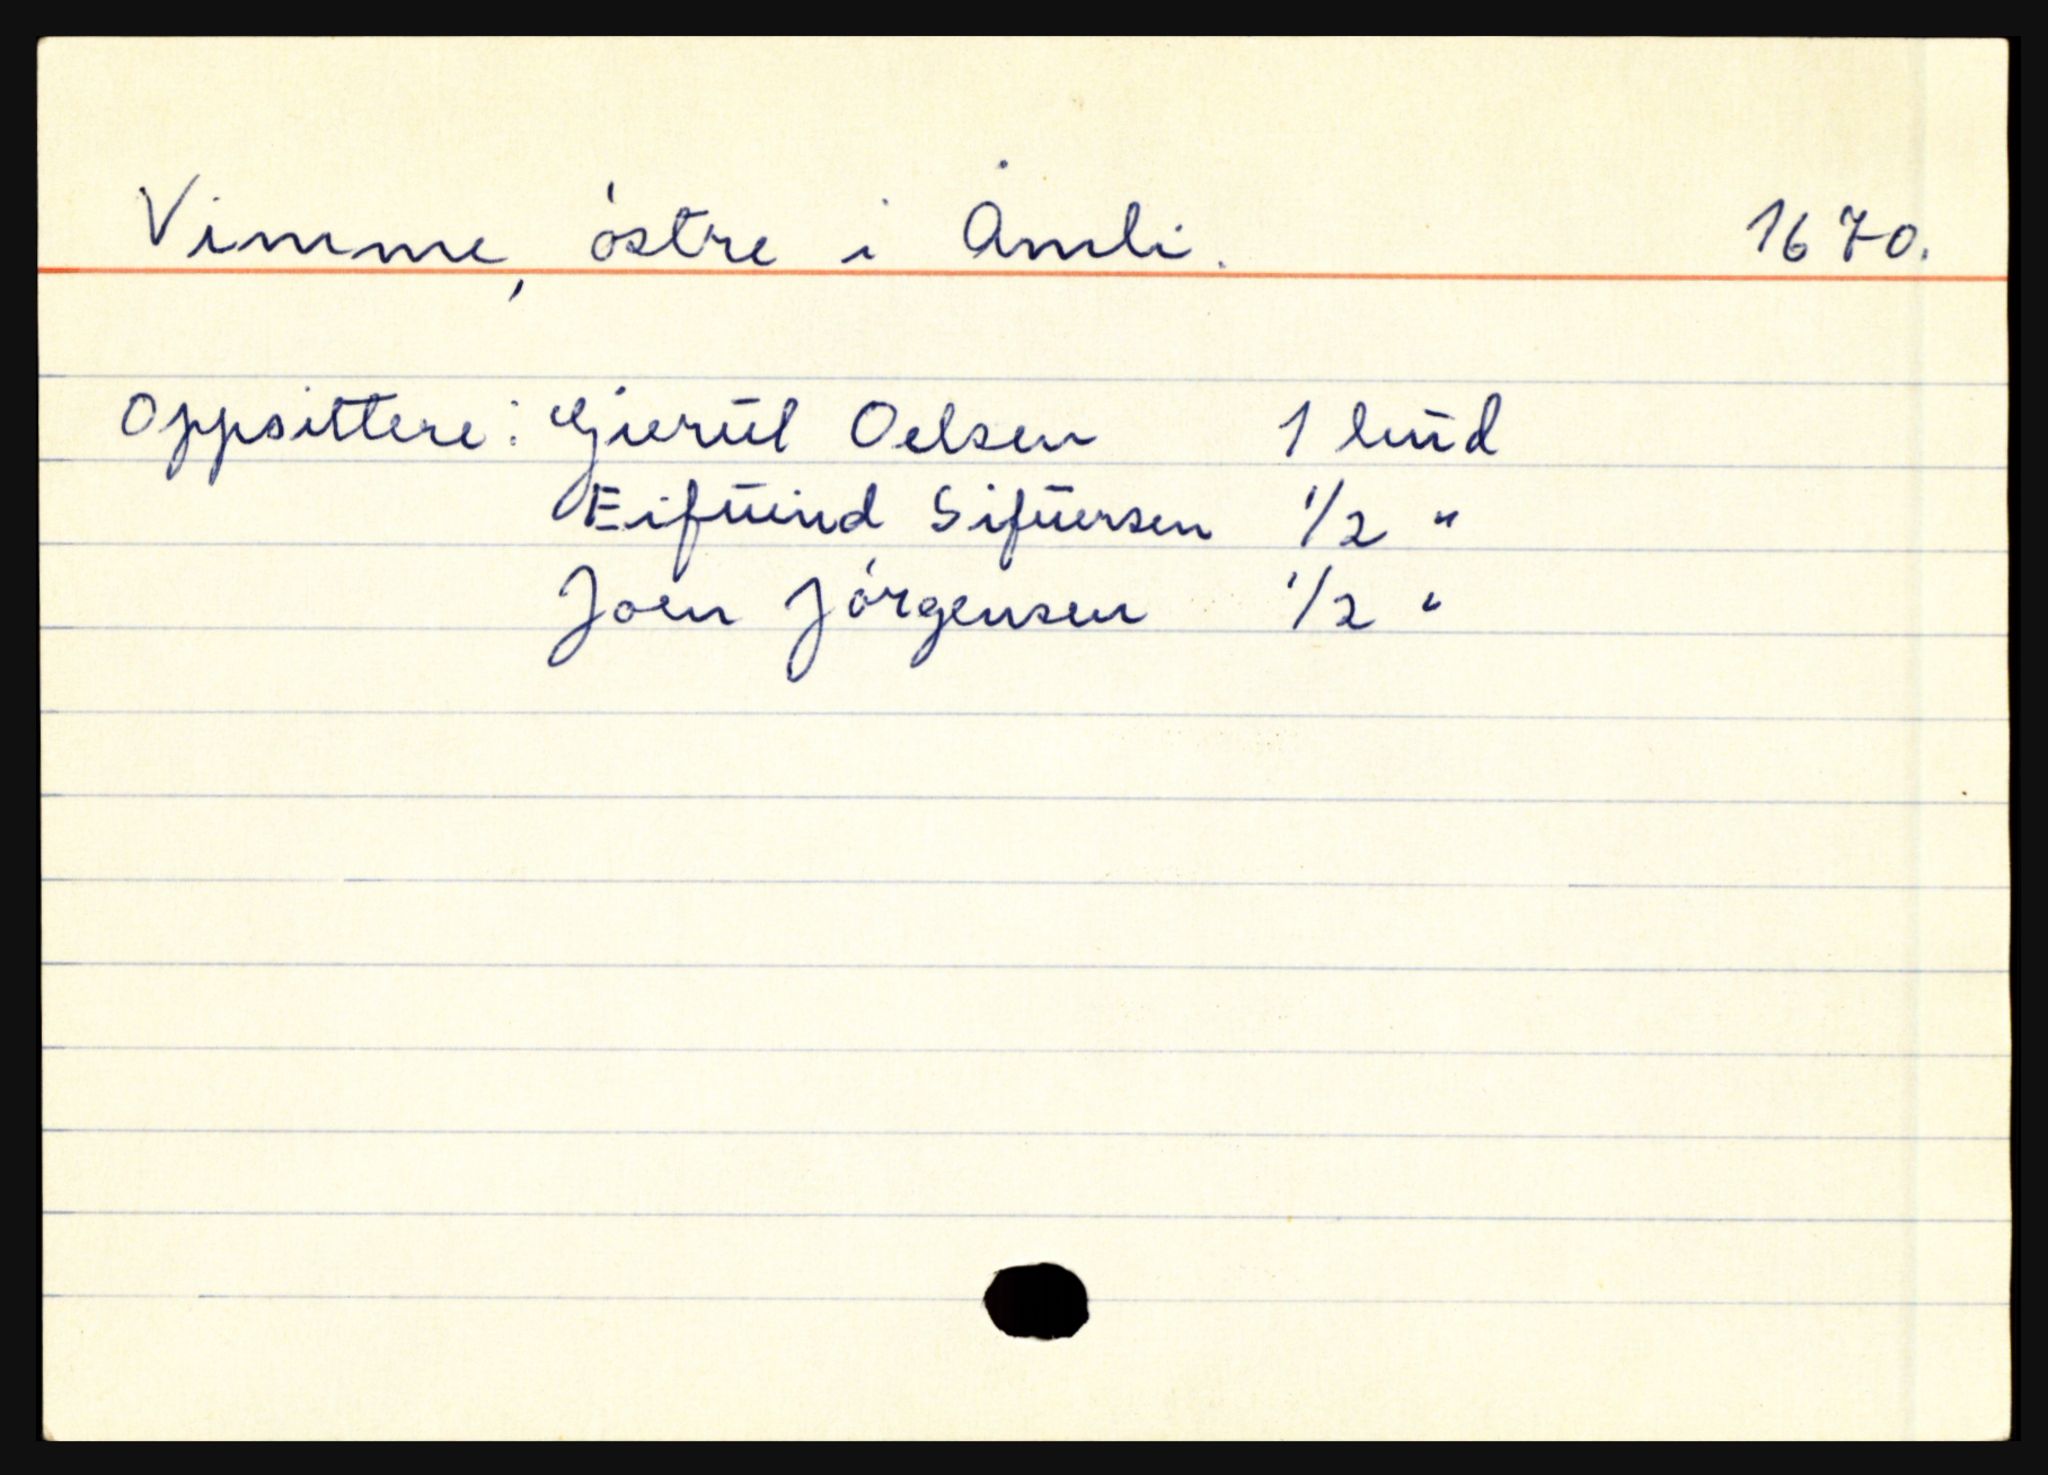 Vimme, östre i Åmli. 1670.
Oppsittere: Gierül Oelsen 1 hüd
Eifüind Sifüersen 1/2 "
Joen Jörgensen 1/2 "